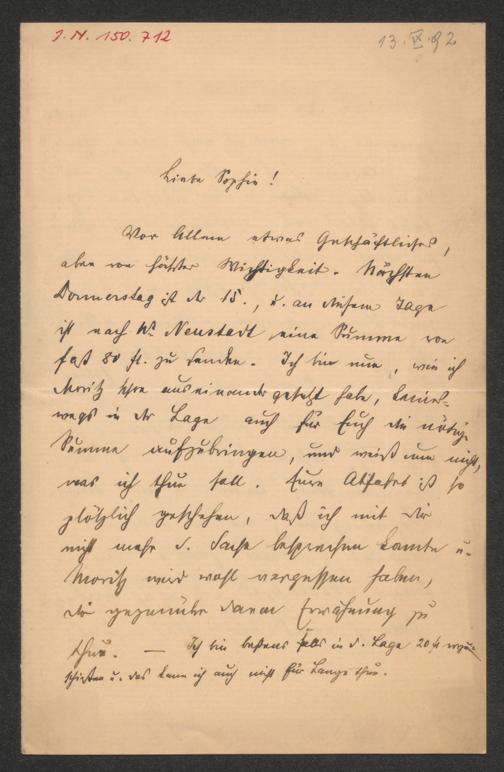 J.N. 150.712
13.IX.92
Liebe Sophie!
Vor Allem etwas Geschäftliches,
aber von höchster Wichtigkeit. Nächsten
Donnerstag ist der 15., u. an diesem Tage
ist nach Wr. Neustadt eine Summe von
fast 80 fl. zu senden. Ich bin nun, wie ich
Moritz schon auseinandergesetzt habe, keines-
wegs in der Lage auch für Euch die nötige
Summe aufzubringen, und weiß nun nicht,
was ich thun soll. Eure Abfahrt ist so
plötzlich geschehen, daß ich mit Dir
nicht mehr d. Sache besprechen konnte u.
Moritz wird wohl vergessen haben,
Dir gegenüber davon Erwähnung zu
thun. — Ich bin bestens falls in d. Lage 20 fl
u. das kann ich auch nicht für Lange thun.